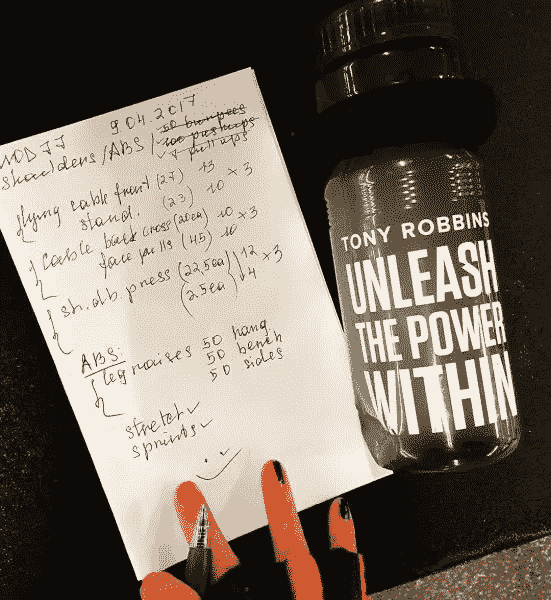 9.04.2017
WOD 77
shoulders/ABS/ 50 burpees
100 pushups
✓ 7 pull ups
flying cable front (27) 13
stand. (23) 10 × 3
cable back cross (20ea) 10 × 3
face pulls (45) 10
sh. db. press (22,5ea) 12 × 3
(2.5ea) 4
ABS:
leg raises 50 hang
50 bench
50 sides
stretch ✓
sprints ✓
TONY ROBBINS
UNLEASH
THE POWER
WITHIN